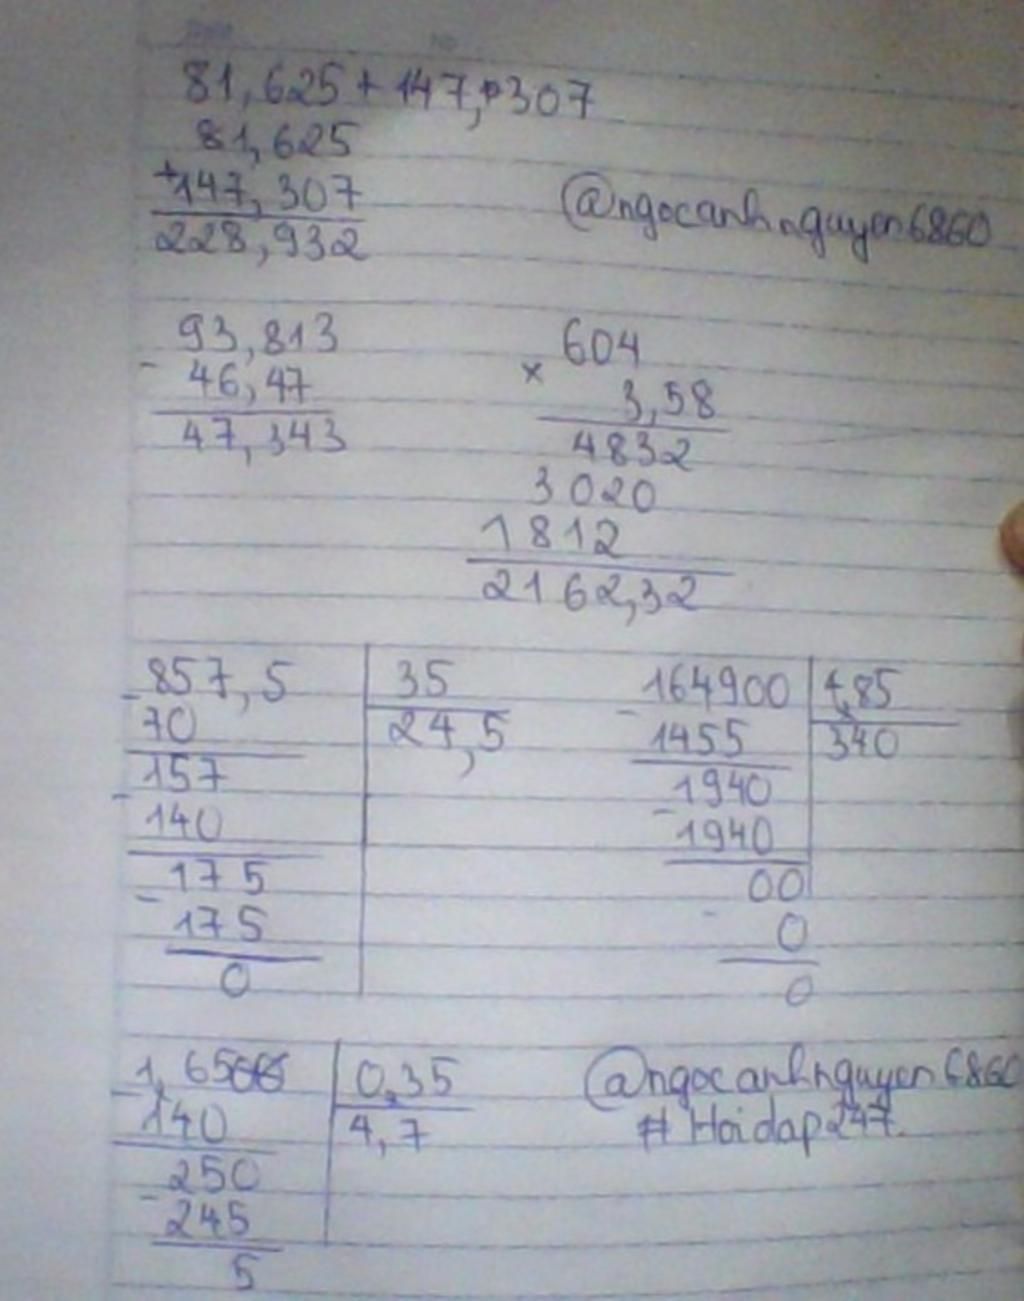 81,625 + 147,307
81,625
+147,307
228,932
@ngocanhnguyen6860
93,813
- 46,47
47,343
604
× 3,58
4832
3020
1812
2162,32
857,5 35
- 70 24,5
157
- 140
175
- 175
0
164900 4,85
- 1455 340
1940
- 1940
00
- 0
0
1,65 0,35
- 140 4,7
250
- 245
5
@ngocanhnguyen6860
# Hoidap247.